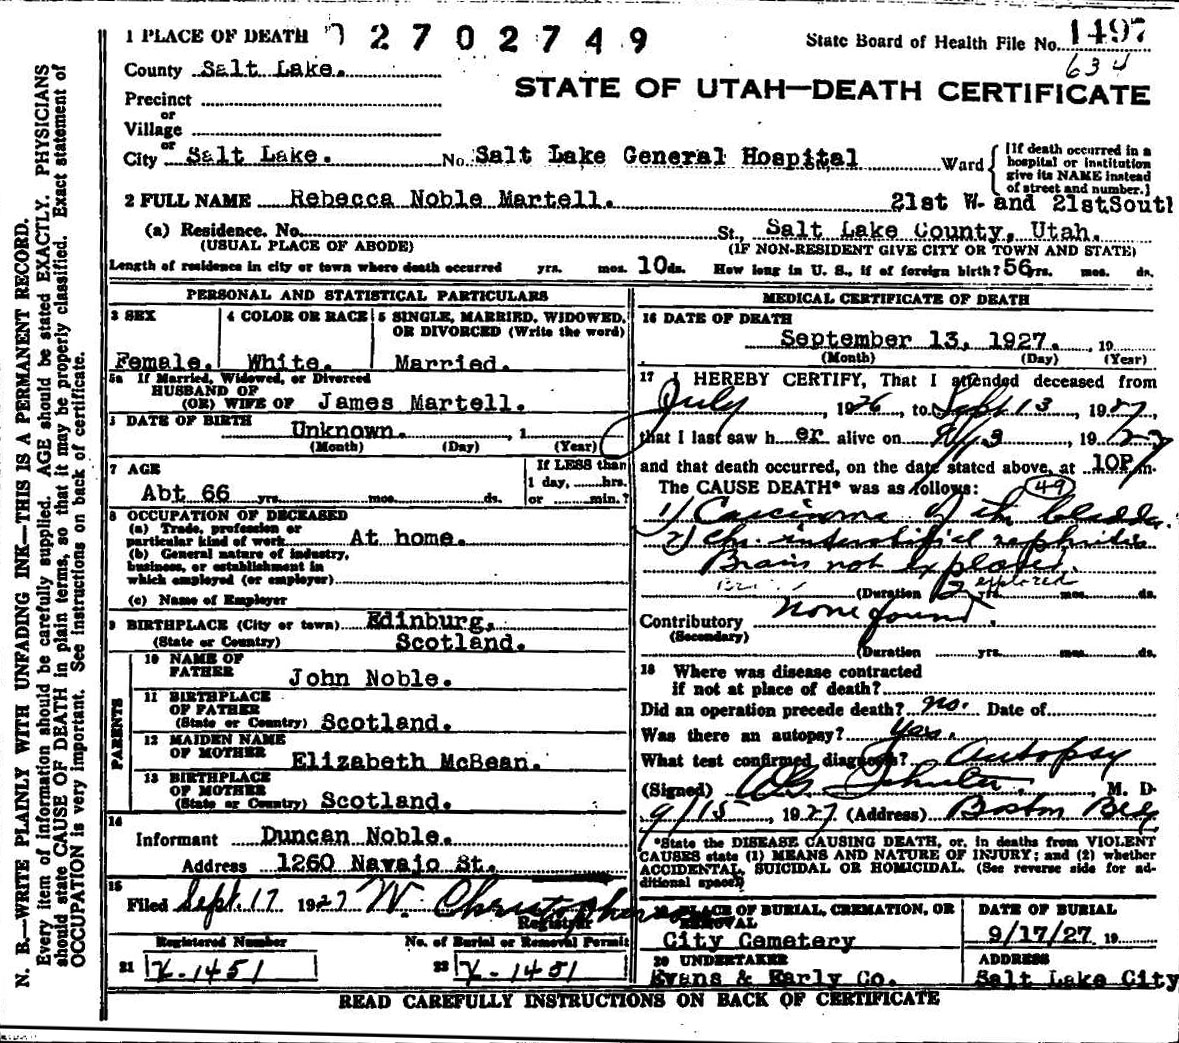 N. B.—WRITE PLAINLY WITH UNFADING INK—THIS IS A PERMANENT RECORD.
Every item of information should be carefully supplied. AGE should be stated EXACTLY. PHYSICIANS
should state CAUSE OF DEATH in plain terms, so that it may be properly classified. Exact statement of
OCCUPATION is very important. See instructions on back of certificate.
1 PLACE OF DEATH 2702749
State Board of Health File No. 1497
634
County Salt Lake.
STATE OF UTAH—DEATH CERTIFICATE
Precinct
or
Village
or
City Salt Lake. No. Salt Lake General Hospital Ward
[If death occurred in a
hospital or institution
give its NAME instead
of street and number.]
2 FULL NAME Rebecca Noble Martell. 21st W. and 21stSouth
(a) Residence. No. St., Salt Lake County, Utah.
(USUAL PLACE OF ABODE) (IF NON-RESIDENT GIVE CITY OR TOWN AND STATE)
Length of residence in city or town where death occurred yrs. mos. 10 ds. How long in U. S., if of foreign birth? 56 yrs. mos. ds.
PERSONAL AND STATISTICAL PARTICULARS
3 SEX
4 COLOR OR RACE
5 SINGLE, MARRIED, WIDOWED,
OR DIVORCED (Write the word)
Female. White. Married.
5a If Married, Widowed, or Divorced
HUSBAND OF
(OR) WIFE OF James Martell.
DATE OF BIRTH Unknown. , 1
(Month) (Day) (Year)
7 AGE
If LESS than
1 day, hrs.
or min.?
Abt 66 yrs. mos. ds.
8 OCCUPATION OF DECEASED
(a) Trade, profession or
particular kind of work At home.
(b) General nature of industry,
business, or establishment in
which employed (or employer)
(c) Name of Employer
9 BIRTHPLACE (City or town) Edinburg,
(State or Country) Scotland.
PARENTS
10 NAME OF
FATHER John Noble.
11 BIRTHPLACE
OF FATHER
(State or Country) Scotland.
12 MAIDEN NAME
OF MOTHER Elizabeth McBean.
13 BIRTHPLACE
OF MOTHER
(State or Country) Scotland.
14
Informant Duncan Noble.
Address 1260 Navajo St.
15
Filed Sept. 17 1927 W. Christopherson
Registrar
Registered Number No. of Burial or Removal Permit
21 X-1451 22 X-1451
MEDICAL CERTIFICATE OF DEATH
16 DATE OF DEATH
September 13, 1927. , 19
(Month) (Day) (Year)
17 I HEREBY CERTIFY, That I attended deceased from
July , 1926, to Sept 13 , 1927,
that I last saw her alive on , 1927
and that death occurred, on the date stated above, at 10P m.
The CAUSE DEATH* was as follows: 49
1) Carcinoma of the bladder.
2) Chr. interstitial nephritis
Brain not explored.
explored
(Duration 2 yrs. mos. ds.
Contributory None found.
(Secondary)
(Duration yrs. mos. ds.
18 Where was disease contracted
if not at place of death?
Did an operation precede death? no. Date of
Was there an autopsy? yes.
What test confirmed diagnosis? Autopsy
(Signed) , M. D
9/15, 1927 (Address) Boston Bldg
*State the DISEASE CAUSING DEATH, or, in deaths from VIOLENT
CAUSES state (1) MEANS AND NATURE OF INJURY; and (2) whether
ACCIDENTAL, SUICIDAL OR HOMICIDAL. (See reverse side for ad-
ditional space)
PLACE OF BURIAL, CREMATION, OR
REMOVAL
City Cemetery
DATE OF BURIAL
9/17/27 19
20 UNDERTAKER
Evans & Early Co.
ADDRESS
Salt Lake City
READ CAREFULLY INSTRUCTIONS ON BACK OF CERTIFICATE